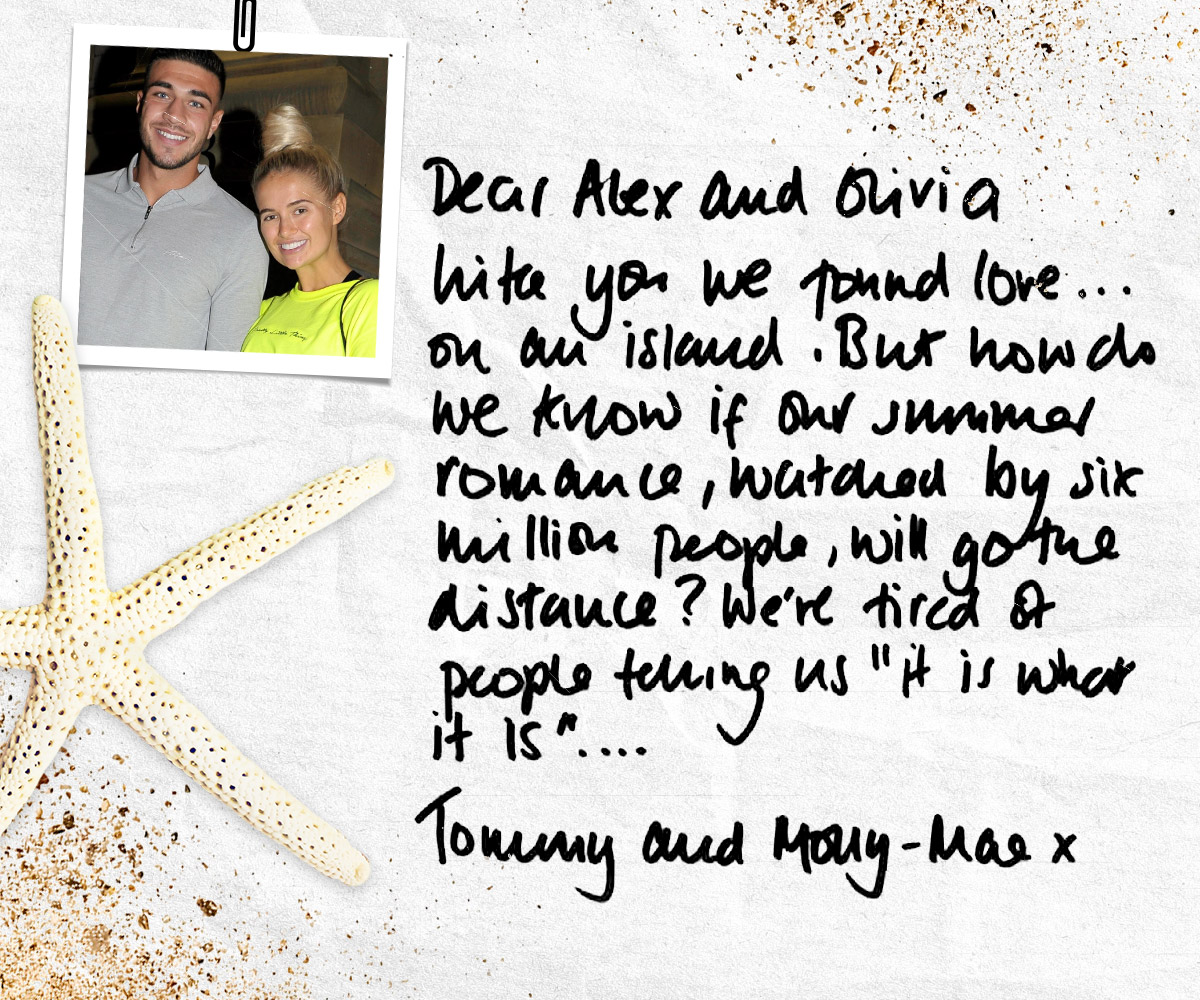 Dear Alex and Olivia
Like you we found love...
on an island. But how do
we know if our summer
romance, watched by six
million people, will go the
distance? We're tired of
people telling us "it is what
it is"....
Tommy and Molly-Mae x